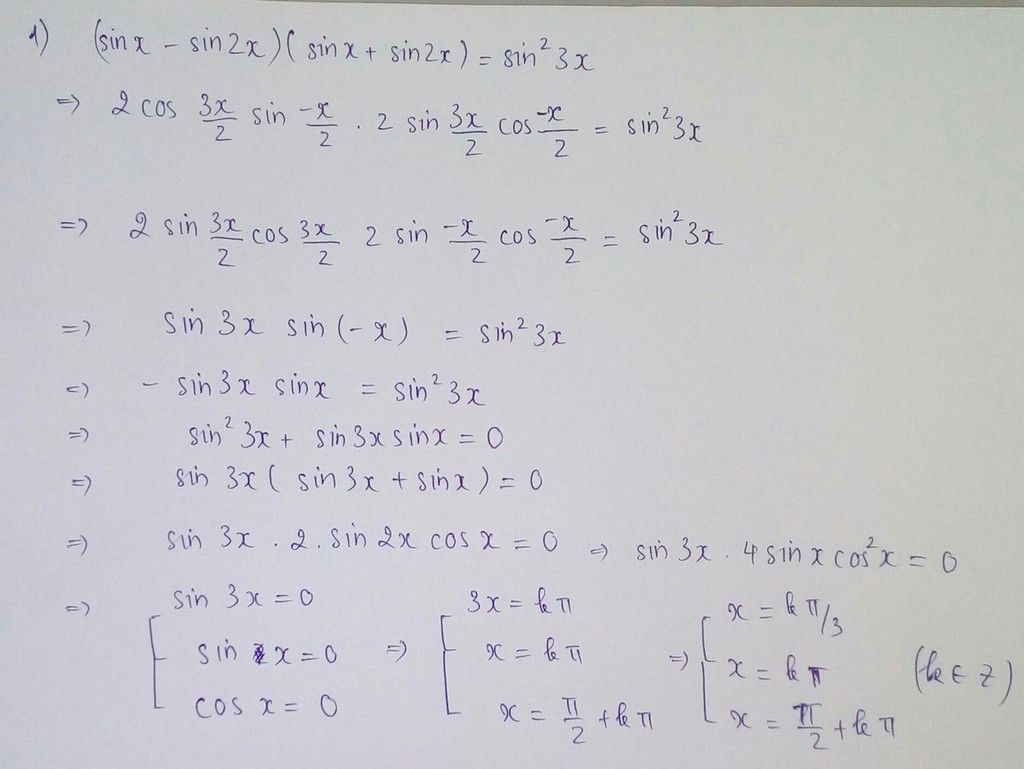 1) (sin x - sin 2x)(sin x + sin 2x) = sin² 3x
=> 2 cos 3x/2 sin -x/2 . 2 sin 3x/2 cos -x/2 = sin² 3x
=> 2 sin 3x/2 cos 3x/2 2 sin -x/2 cos -x/2 = sin² 3x
=> sin 3x sin (-x) = sin² 3x
=> - sin 3x sin x = sin² 3x
=> sin² 3x + sin 3x sin x = 0
=> sin 3x ( sin 3x + sin x ) = 0
=> sin 3x . 2 . sin 2x cos x = 0 => sin 3x . 4 sin x cos² x = 0
=> [ sin 3x = 0 => [ 3x = kπ => [ x = kπ/3
sin x = 0 x = kπ x = kπ (k ∈ Z)
cos x = 0 x = π/2 + kπ x = π/2 + kπ